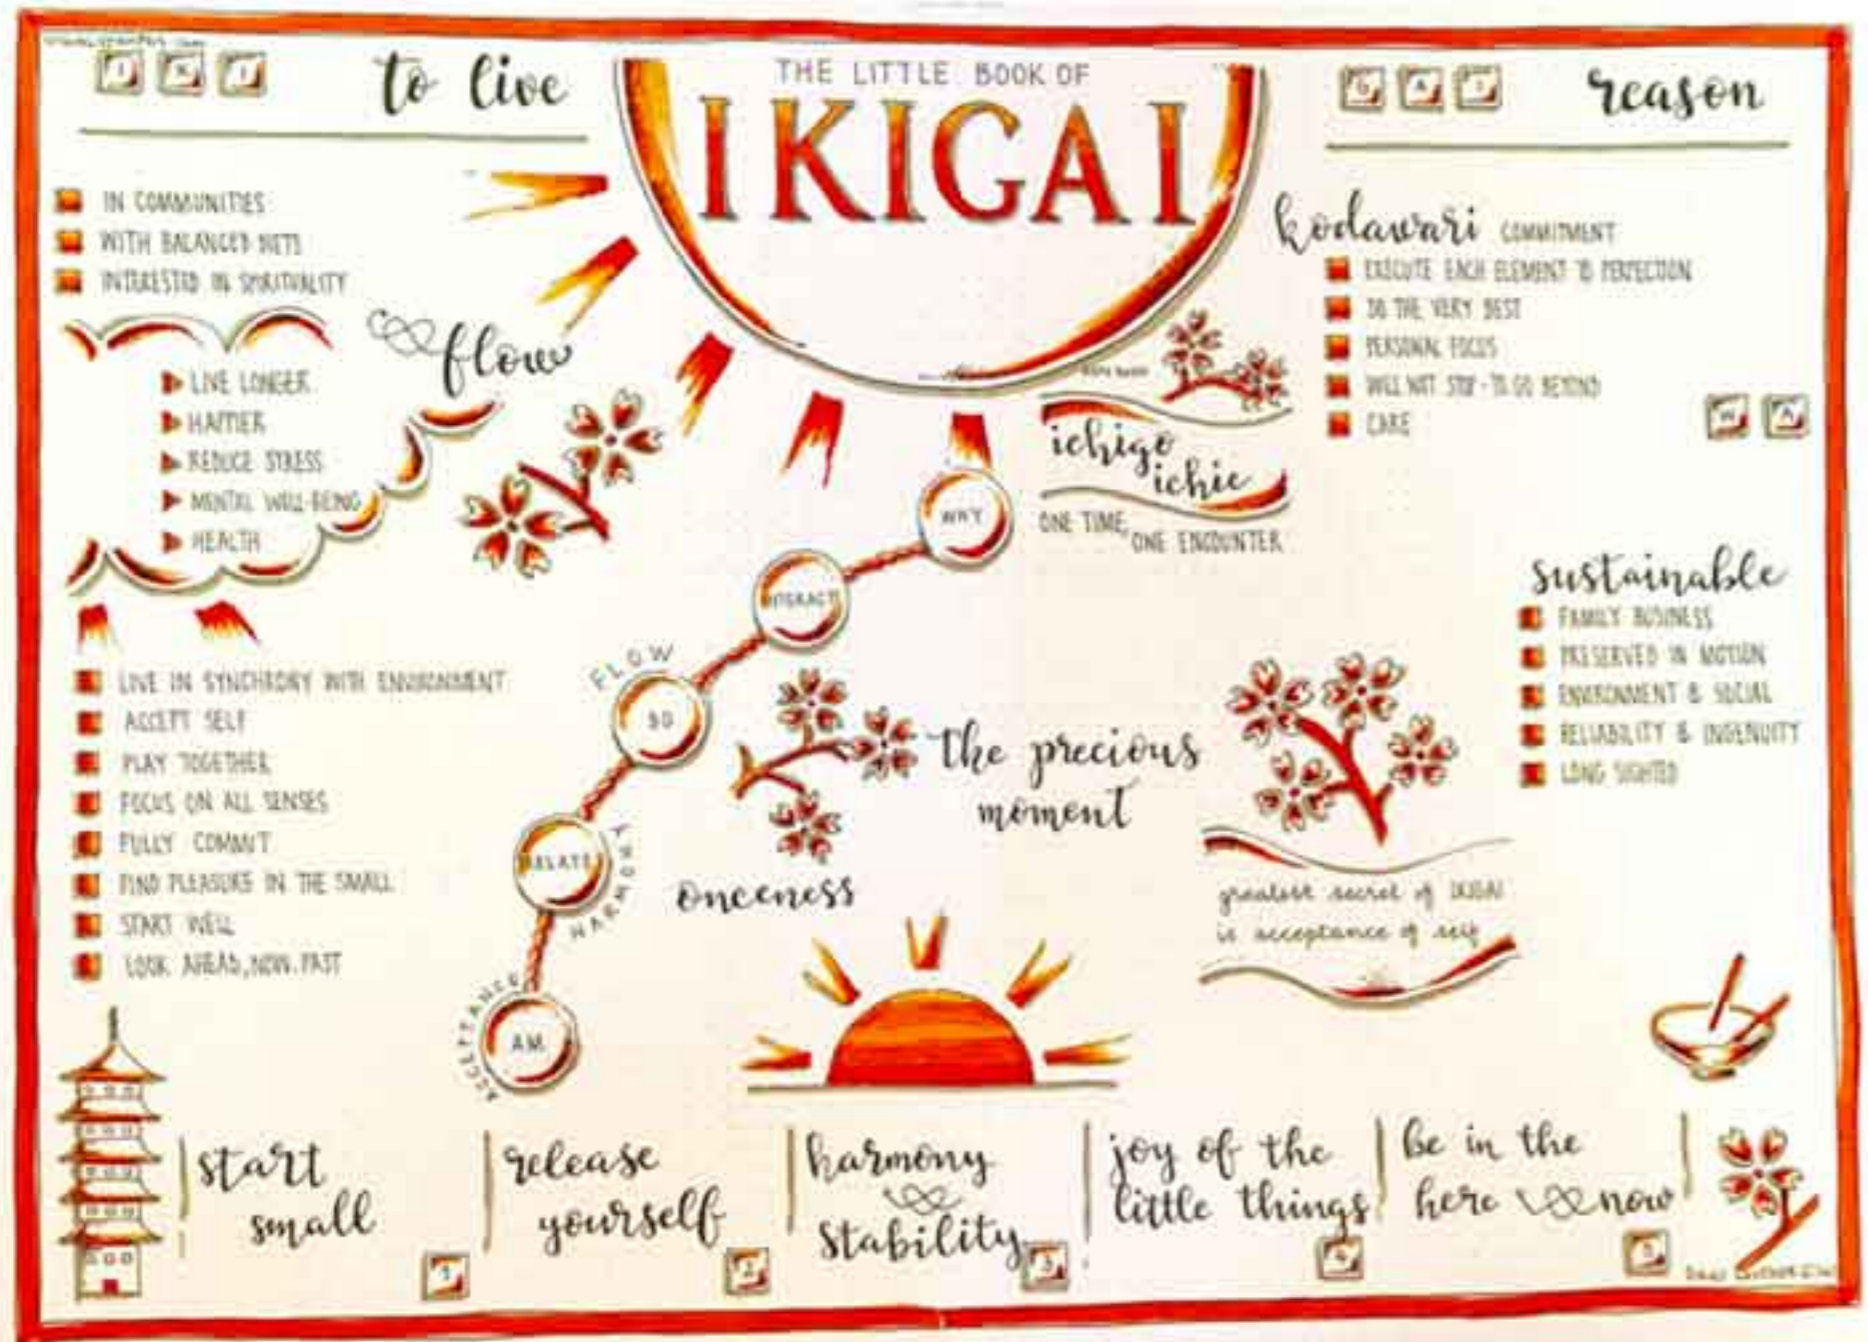 IKI
to live
THE LITTLE BOOK OF
IKIGAI
GAI
reason
IN COMMUNITIES
WITH BALANCED DIETS
INTERESTED IN SPIRITUALITY
flow
LIVE LONGER
HAPPIER
REDUCE STRESS
MENTAL WELL-BEING
HEALTH
LIVE IN SYNCHRONY WITH ENVIRONMENT
ACCEPT SELF
PLAY TOGETHER
FOCUS ON ALL SENSES
FULLY COMMIT
FIND PLEASURE IN THE SMALL
START WELL
LOOK AHEAD, NOW, PAST
WHY
INTERACT
FLOW
DO
RELATE
HARMONY
ACCEPTANCE
AM
ichigo
ichie
ONE TIME,
ONE ENCOUNTER
the precious
moment
onceness
kodawari COMMITMENT
EXECUTE EACH ELEMENT TO PERFECTION
DO THE VERY BEST
PERSONAL FOCUS
WILL NOT STOP - TO GO BEYOND
CARE
WA
sustainable
FAMILY BUSINESS
PRESERVED IN MOTION
ENVIRONMENT & SOCIAL
RELIABILITY & INGENUITY
LONG SIGHTED
greatest secret of IKIGAI
is acceptance of self
start
small
1
release
yourself
2
harmony
&
stability
3
joy of the
little things
4
be in the
here & now
5